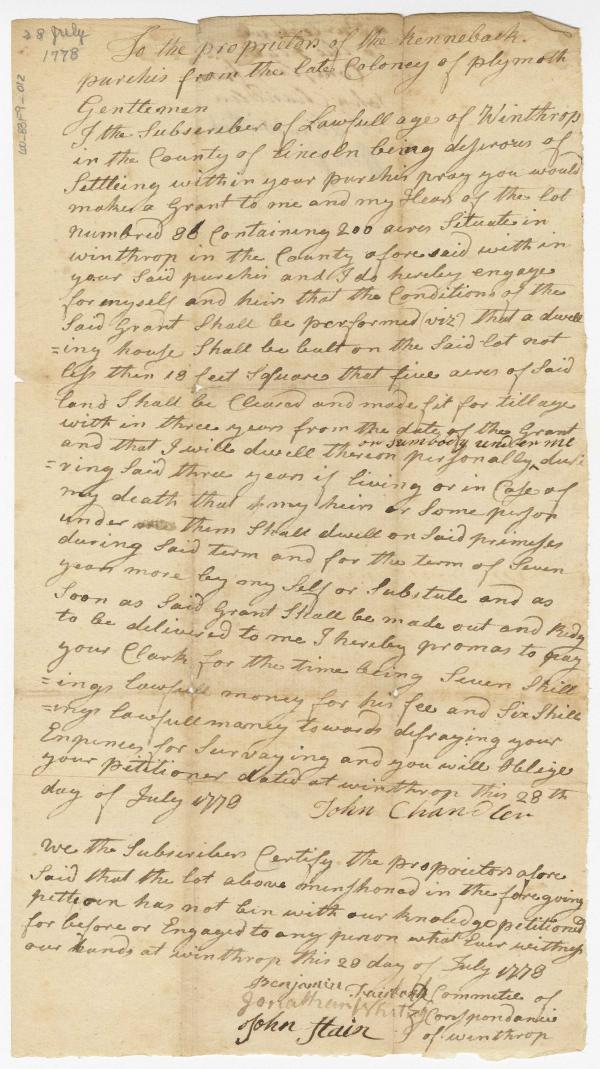 28 July
1778
To the proprietors of the Kenneback
purchis from the late Coloney of plymoth
Gentlemen
I the Subscriber of Lawfull age of Winthrop
in the County of Lincoln being desirous of
Settleing within your purchis pray you would
make a Grant to me and my Hears of the lot
Numbred 86 Containing 200 acres Situate in
winthrop in the County afore said with in
your Said purchis and I do hereby engage
for myself and heirs that the Conditions of the
Said Grant Shall be performed (viz) that a dwell
=ing house Shall be bult on the Said lot not
less then 18 feet Square that five acres of Said
land Shall be Cleared and made fit for tillage
with in three years from the date of the Grant
and that I will dwell thereon personally or sumbody under me dur
=ring Said three years if living or in Case of
my death that my heirs or Some person
under them Shall dwell on Said primeses
during Said term and for the term of Seven
years more by my Self or Substute and as
Soon as Said Grant Shall be made out and Redy
to be delivered to me I hereby promas to pay
your Clark for the time being Seven Shill
=ings lawfull money for his fee and Six Shill
=ings lawfull maney towards defraying your
Expences for Survaying and you will Oblige
your Petitioner dated at winthrop this 28 th
day of July 1778
John Chandler
We the Subscribers Certify the proprietors afore
Said that the lot above menshonad in the foregoing
petteion has not bin with our knoledge petitioned
for before or Engaged to any person what Ever wittness
our hands at winthrop this 28 day of July 1778
Benjamin Fairbank
Jonathan Whiting
John Stain
Committe of
Correspondance
of winthrop